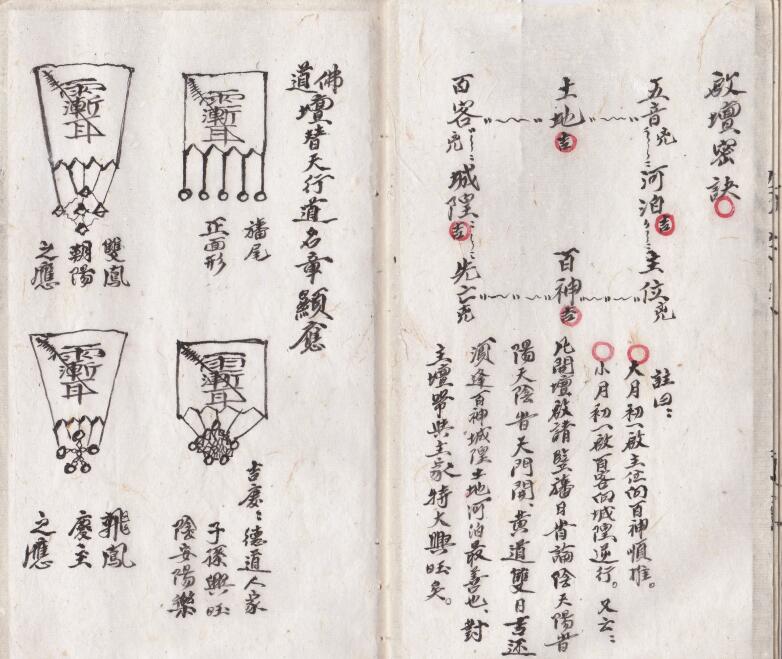 啟壇密訣
五音兇
河泊吉
主位兇
土地吉
百神吉
百客兇
城隍吉
先亡兇
註曰：
大月初一啟主位向百神順推。
小月初一啟百客向城隍逆行。又云：
凡開壇啟請豎旛日皆論陰天陽晋
陽天陰晋天門開、黃道雙日吉还
須逢百神城隍土地河泊最善也、對
主壇帶與主家特大興旺矣。
佛
道
壇替天行道名章顯應
旛尾
正面形
雙鳳
朝陽
之應
吉慶：德道人家
子孫興旺
陰安陽樂
飛鳳
慶主
之應
漸耳
漸耳
漸耳
漸耳